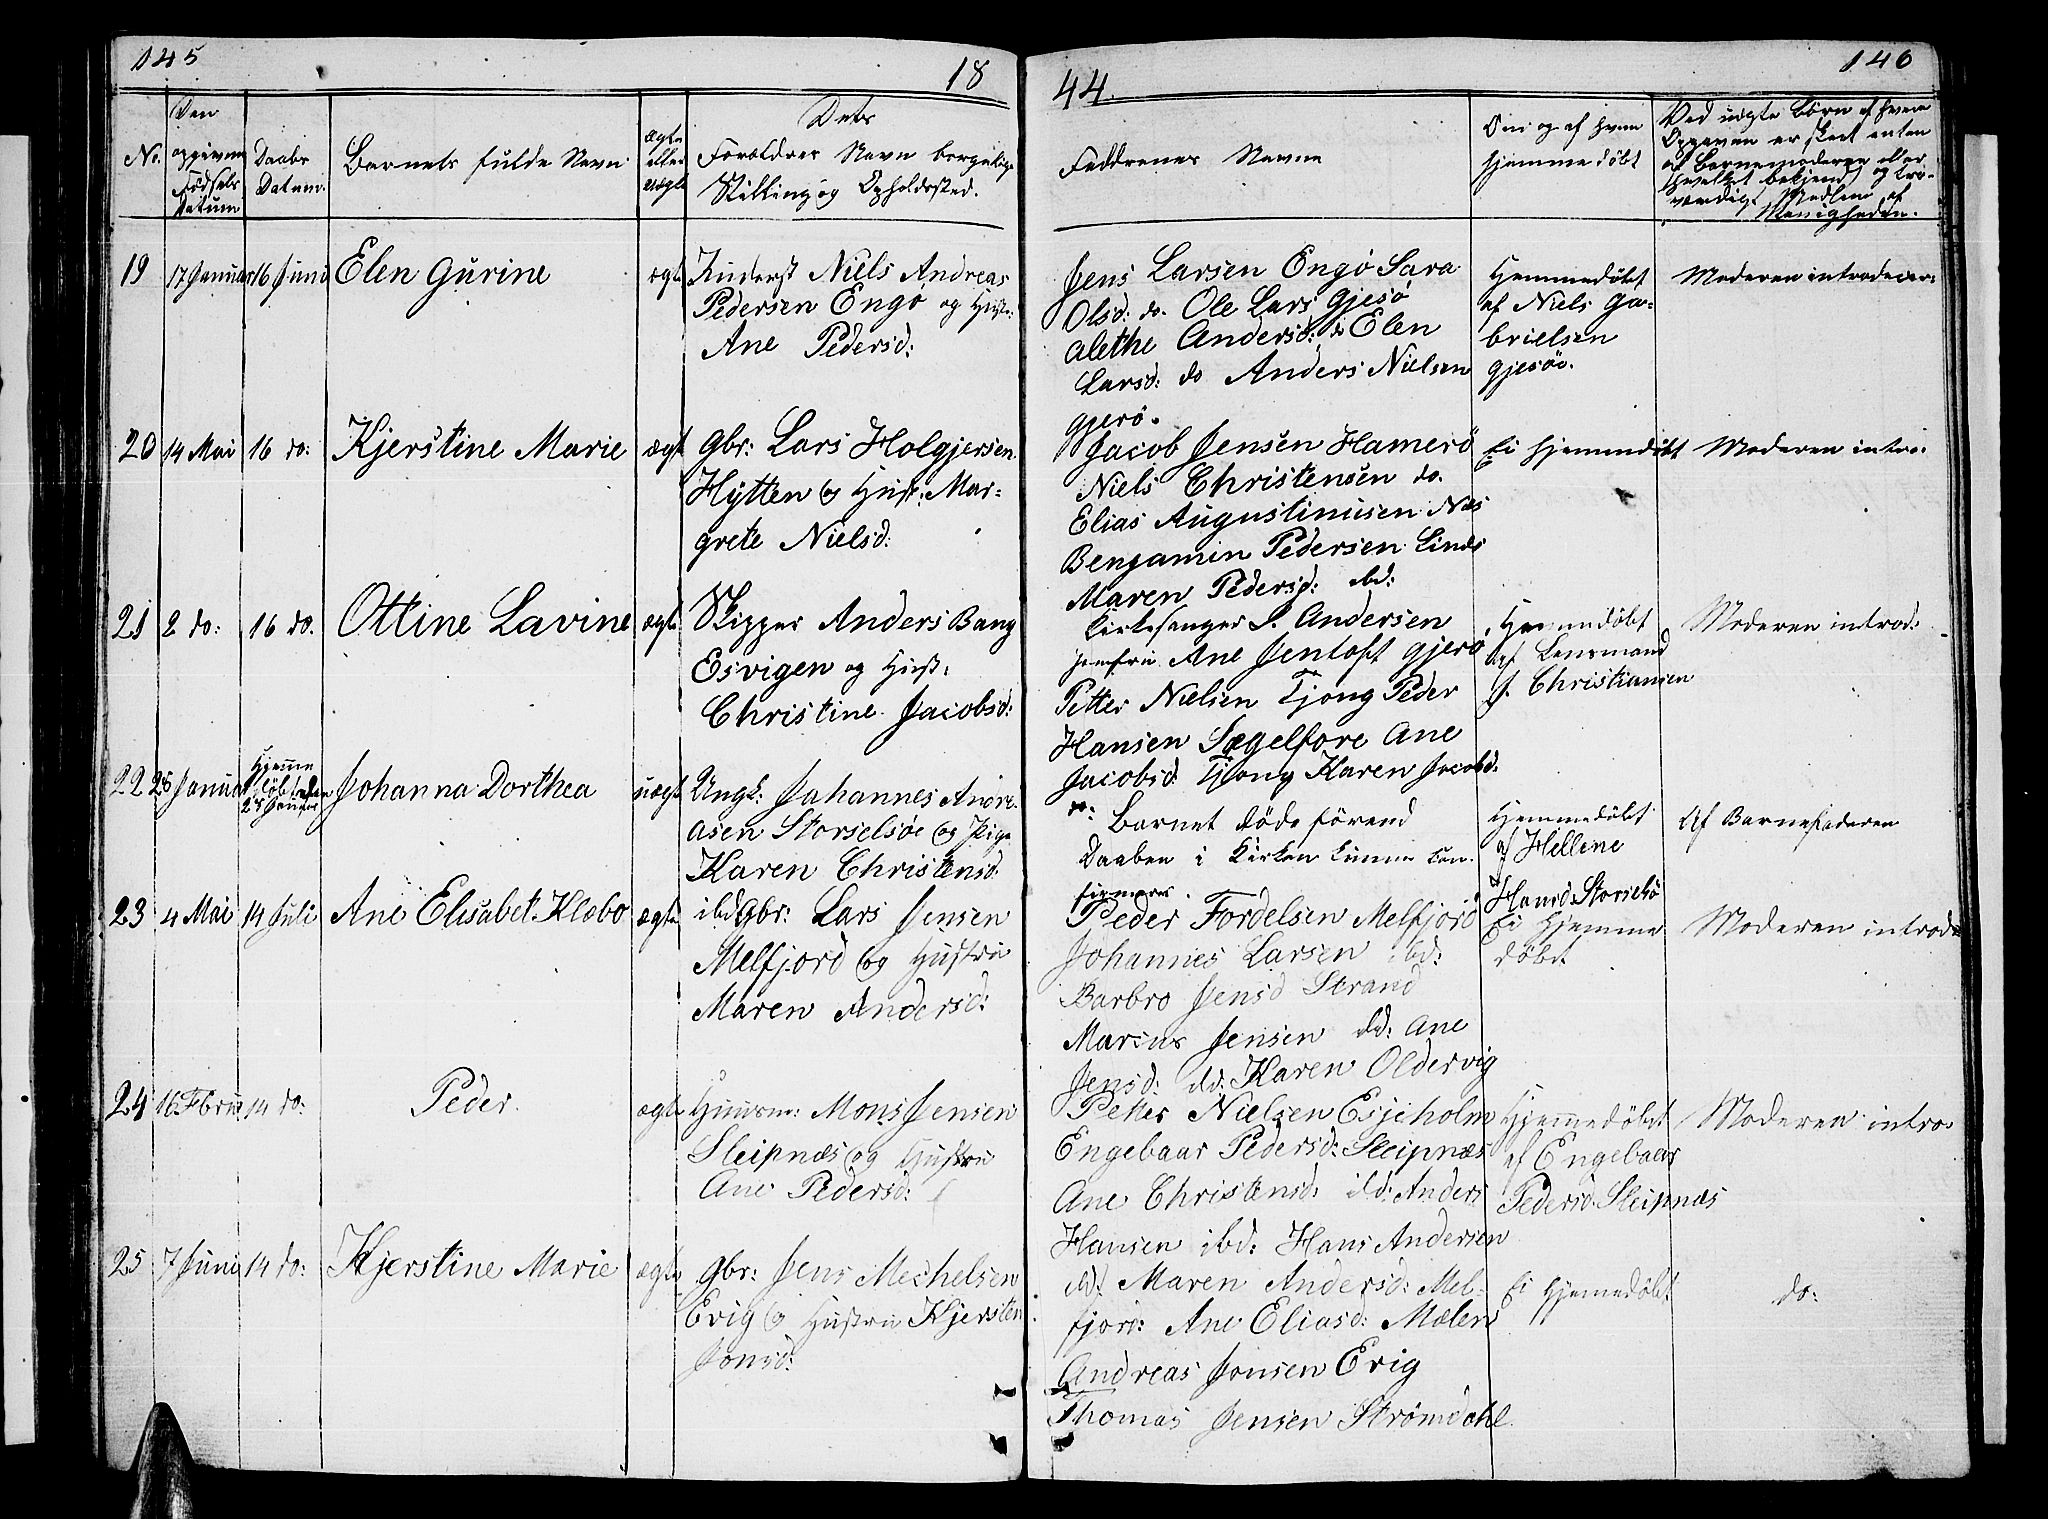 145
18
Den
opgivne
Fødsels
Datum
No.
Daabs
Datum
Barnets fulde Navn
ægte
eller
uægte
Dets
Forældres Navn borgelige
Stilling og Opholdssted.
19 17 Januar 16 Juni Elen Gurine ægte Inderst Niels Andreas
Pedersen Engø og Hust:
Ane Pedersd:
20 14 Mai 16 do: Kjerstine Marie ægt Gbr: Lars Holgjersen
Hytten og Hust: Mar-
grete Nielsd:
21 2 do: 16 do. Ottine Lavine ægte Skipper Anders Bang
Esvigen og Hust:
Christine Jacobsd:
22 25 Januar Hjemme
døbt den
25 Januar Johanna Dorthea uægt Ungk: Jahannes Andre-
asen Storselsøe og Pige
Karen Christensd.
ibd
23 4 Mai 14 Juli Ane Elisabet Klæbo ægte Gbr: Lars Jensen
Melfjord og Hustru
Maren Andersd:
24 16 Fbru 14 do: Peder ægte Huusm: Mons Jensen
Sleipnæs og Hustru
Ane Pedersd:
25 7 Juni 14 do: Kjerstine Marie ægte Gbr: Jens Mechelsen
Evig og Hustru Kjersten
Jonsd:
146
44.
Faddrenes Navne
Om og af hvem
hjemmedøbt
Ved uægte Børn af hvem
Opgaven er skeet enten
af Barnemoderen eller
hvilket bekjendt og tro-
værdigt Medlem af
Menigheden.
Jens Larsen Engø Sara
Olsd: do. Ole Lars Gjesø
Alethe Andersd: do Elen
Larsd: do Anders Nielsen
gjerø.
Hjemmedøbt
af Niels Ga-
brielsen
Gjesøe.
Moderen introducer:
Jacob Jensen Hamerø
Niels Christensen do.
Elias Augustinusen Næs
Benjamin Pedersen Linds
Maren Pedersd: ibd:
Ei hjemmdøbt
Moderen intro:
Kirkesanger S. Andersen
Jomfru Ane Jentoft gjerø
Petter Nielsen Tjong Peder
Hansen Sægelfore Ane
Jacobsd. Tjong Karen Jacobsd:
do:
Hjemmedøbt
af Lensmand
J. Christiansen
Moderen introd:
Barnet døde førend
Daaben i Kirken kunne con-
firmeres.
Hjemmedøbt
af Hellene
Hansd: Storselsø
Af Barnefaderen
Peder Fordelsen Melfjord
Johannes Larsen ibd:
Barbro Jensd Strand
Marius Jensen ibd: Ane
Jensd: ibd: Karen Oldervig
Ei hjemme
døbt
Moderen introd
Petter Nielsen Esjeholm
Engebaar Pedersd: Sleipnæs
Ane Christensd: ibd: Anders
Hansen ibd: Hans Andersen
ibd:
Hjemmedøbt
af Engebaar
Pedersd. Sleipnæs
Moderen intro.
Maren Andersd: Mel-
fjord: Ane Eliasd: Mælen
Andreas Jonsen Evig
Thomas Jensen Strømdahl
Ei hjemedøbt
do: